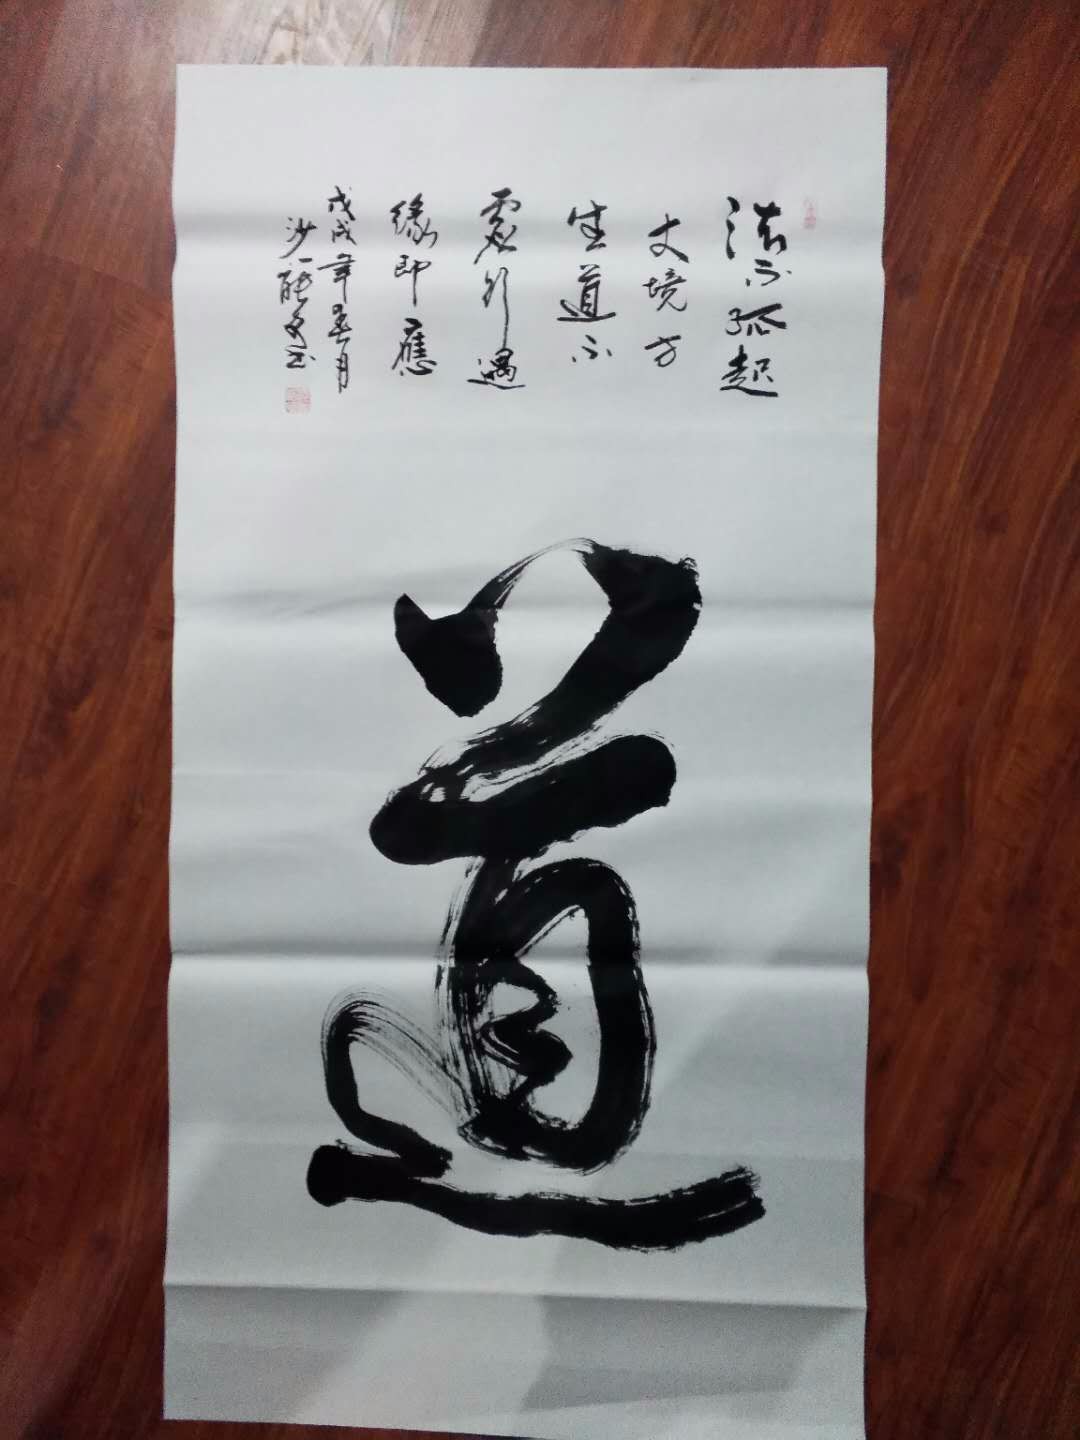 法不孤起
丈境方
生道不
虚行遇
缘即應
戊戌年春月
沙龍
道